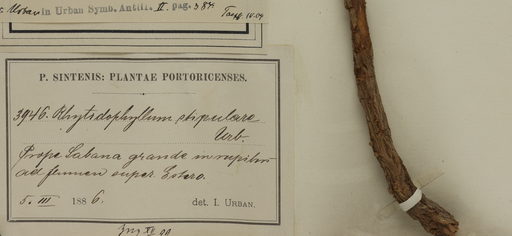 Urban in Urban Symb. Antill. II. pag. 384
P. SINTENIS: PLANTAE PORTORICENSES.
3946. Rhytidophyllum stipulare
Urb.
Prope Sabana grande in rupibus
ad flumen super. Estero.
5. III 1886. det. I. URBAN.